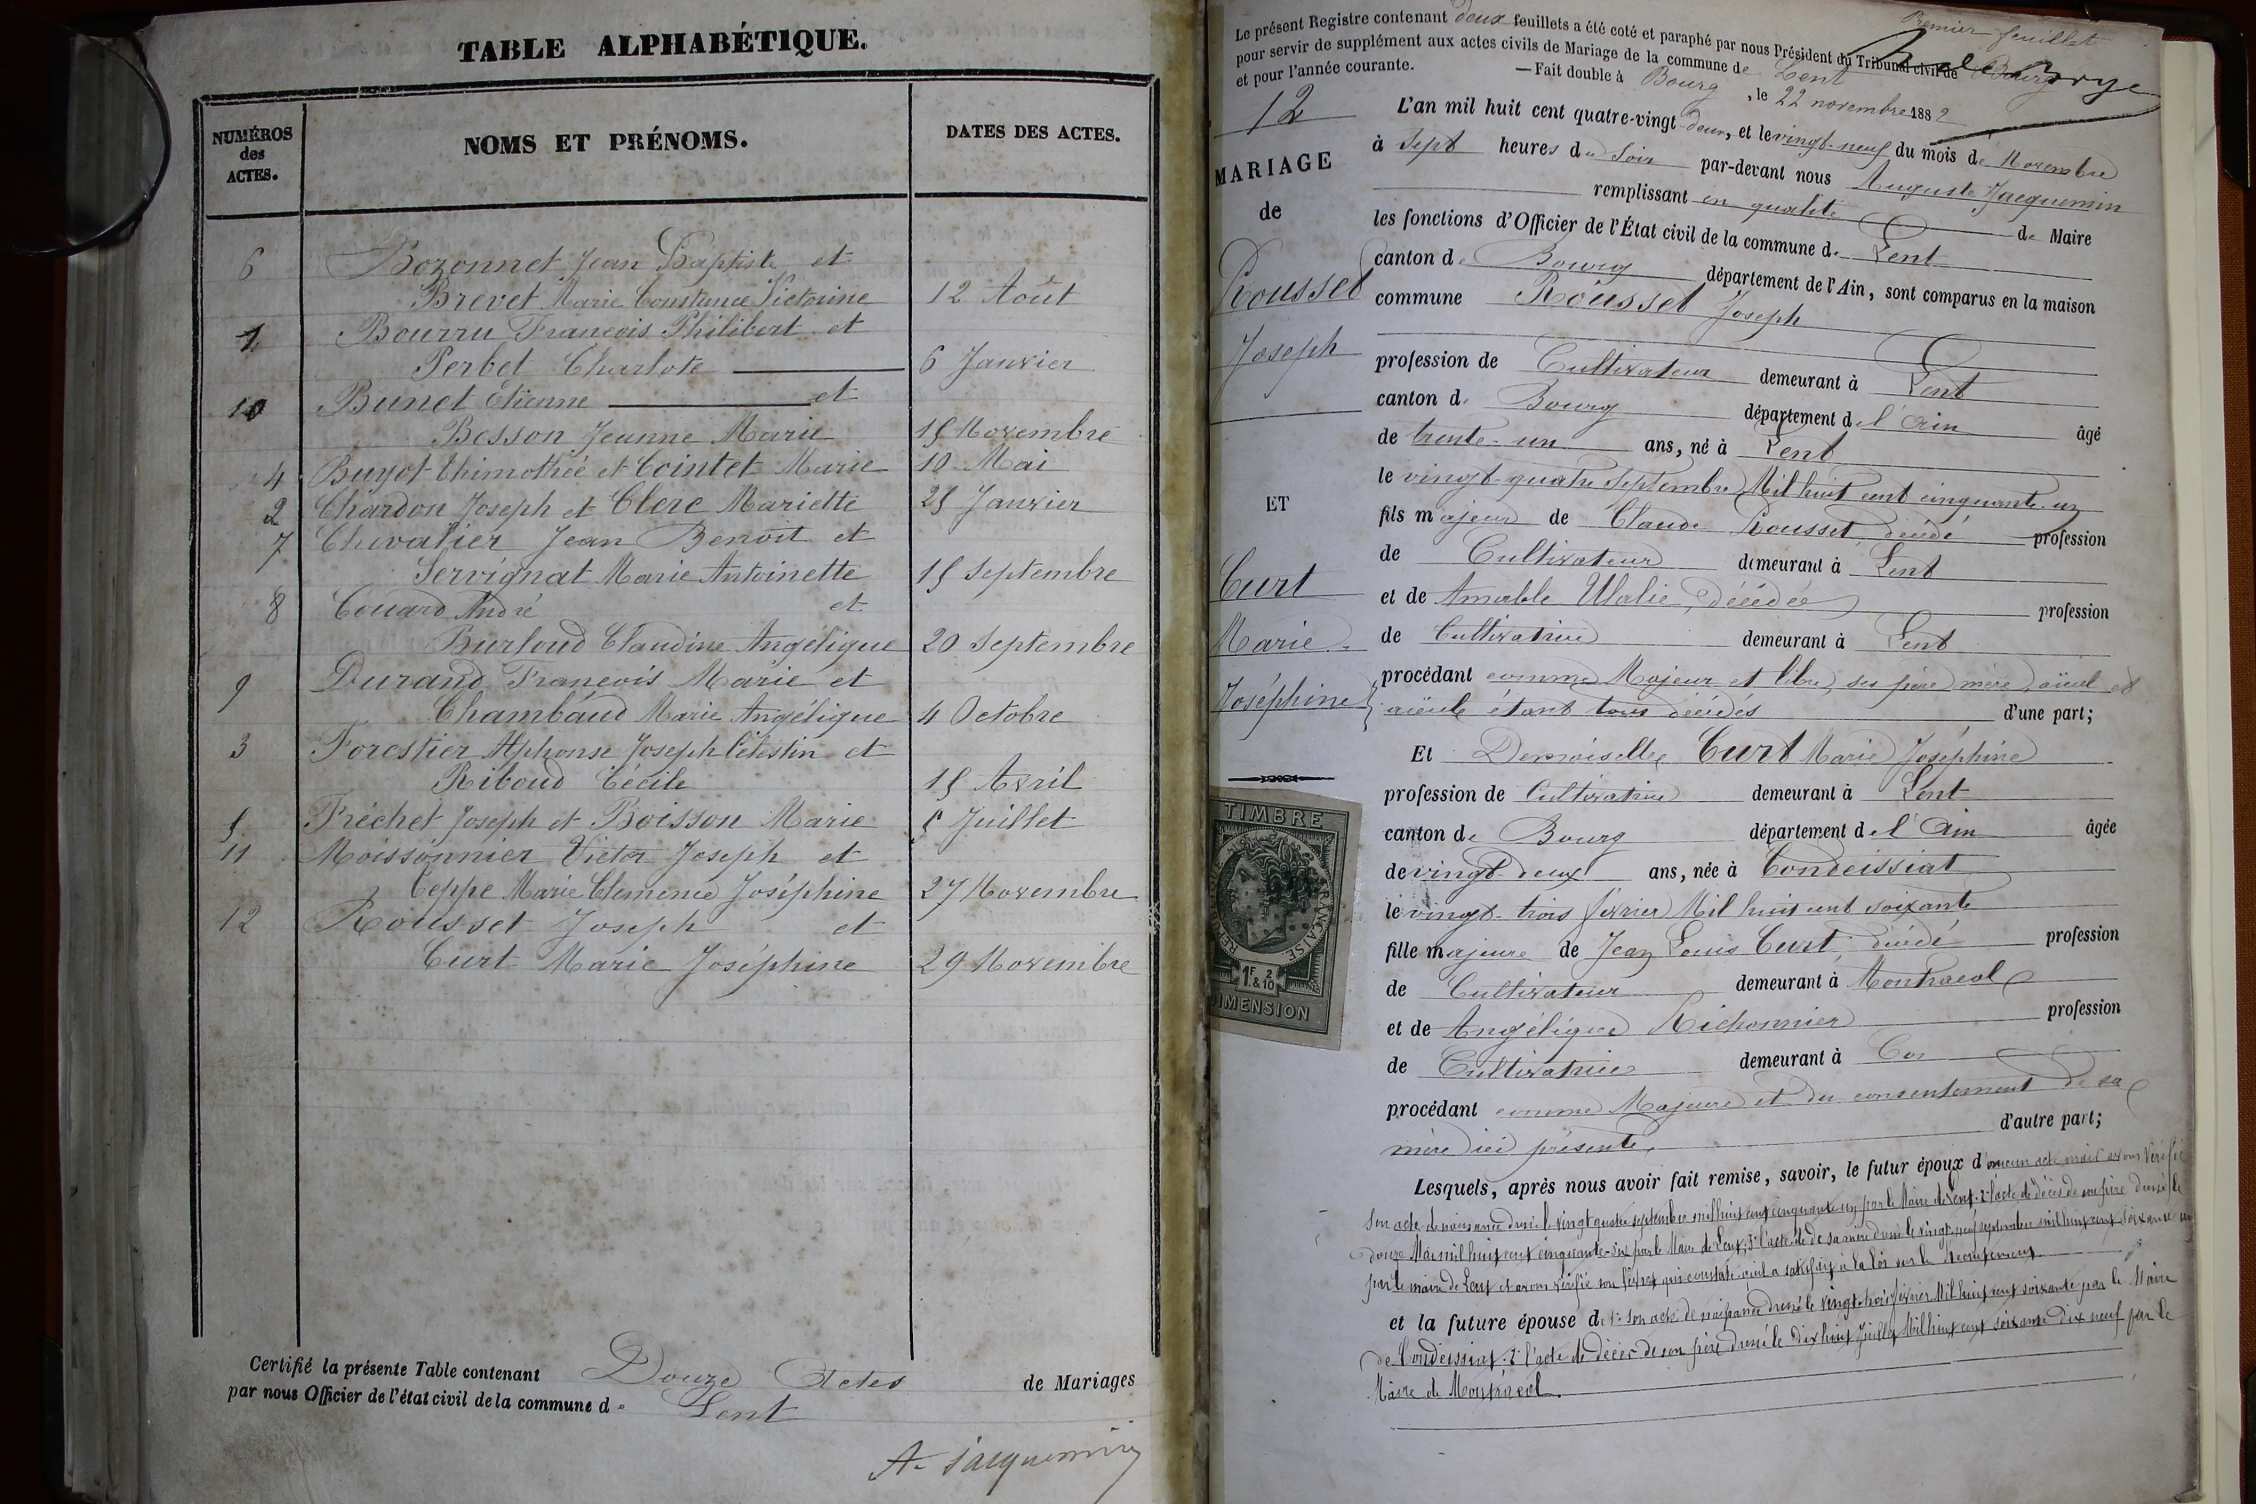 TABLE ALPHABÉTIQUE.
NUMÉROS des ACTES.
NOMS ET PRÉNOMS.
DATES DES ACTES.
6 Bozonnet Jean Baptiste et
Brevet Marie Constance Victorine 12 Août
1 Bourru François Philibert et
Perbet Charlote 6 Janvier
10 Bunet Etienne et
Besson Jeanne Marie 15 Novembre
4 Buyot Thimothée et Cointet Marie 10 Mai
2 Chardon Joseph et Clerc Mariette 25 Janvier
7 Chevalier Jean Benoit et
Servignat Marie Antoinette 15 Septembre
8 Couard André et
Burloud Claudine Angélique 20 Septembre
9 Durand François Marie et
Chambaud Marie Angélique 4 Octobre
3 Forestier Alphonse Joseph Célestin et
Riboud Cécile 15 Avril
5 Fréchet Joseph et Boisson Marie 5 Juillet
11 Moissonnier Victor Joseph et
Ceppe Marie Clemence Joséphine 27 Novembre
12 Rousset Joseph et
Curt Marie Joséphine 29 Novembre
Certifié la présente Table contenant Douze Actes de Mariages
par nous Officier de l'état civil de la commune de Lent
A. Jacquemin
Premier feuillet
Le présent Registre contenant deux feuillets a été coté et paraphé par nous Président du Tribunal civil de Bourg
pour servir de supplément aux actes civils de Mariage de la commune de Lent
et pour l'année courante. — Fait double à Bourg, le 22 novembre 1882
12
MARIAGE
de
Rousset
Joseph
ET
Curt
Marie
Joséphine
TIMBRE
RÉPUBLIQUE FRANÇAISE
1F. 2 & 10
DIMENSION
L'an mil huit cent quatre-vingt-deux, et le vingt-neuf du mois de Novembre
à Sept heures du Soir par-devant nous Auguste Jacquemin
remplissant en qualité de Maire
les fonctions d'Officier de l'État civil de la commune de Lent
canton de Bourg département de l'Ain, sont comparus en la maison
commune Rousset Joseph
profession de Cultivateur demeurant à Lent
canton de Bourg département de l'Ain âgé
de trente-un ans, né à Lent
le vingt-quatre Septembre Mil huit cent cinquante-un
fils majeur de Claude Rousset, décédé profession
de Cultivateur demeurant à Lent
et de Amable Ulalie, décédée profession
de Cultivatrice demeurant à Lent
procédant comme Majeur et libre, ses père, mère, aïeul et
aïeule étant tous décédés d'une part;
Et Demoiselle Curt Marie Joséphine
profession de Cultivatrice demeurant à Lent
canton de Bourg département de l'Ain âgée
de vingt-deux ans, née à Condeissiat
le vingt-trois février Mil huit cent soixante
fille majeure de Jean Louis Curt, décédé profession
de Cultivateur demeurant à Montracol
et de Angélique Richonnier profession
de Cultivatrice demeurant à
procédant comme Majeure et du consentement de sa
mère ici présente, d'autre part;
Lesquels, après nous avoir fait remise, savoir, le futur époux d'aucun acte mais avons vérifié
son acte de naissance dressé le vingt quatre septembre mil huit cent cinquante un par le Maire de Lent. 2° l'acte de décès de son père dressé le
douze Mai mil huit cent cinquante-six par le Maire de Lent; 3° l'acte de de sa mère dressé le vingt-neuf septembre mil huit cent soixante un
par le maire de Lent et avons vérifié son livret qui constate qu'il a satisfait à la loi sur le Recrutement
et la future épouse de 1° son acte de naissance dressé le vingt-trois février Mil huit cent soixante par le Maire
de Condeissiat. 2° l'acte de décès de son père dressé le dix huit Juillet Mil huit cent soixante dix neuf par le
Maire de Montracol.